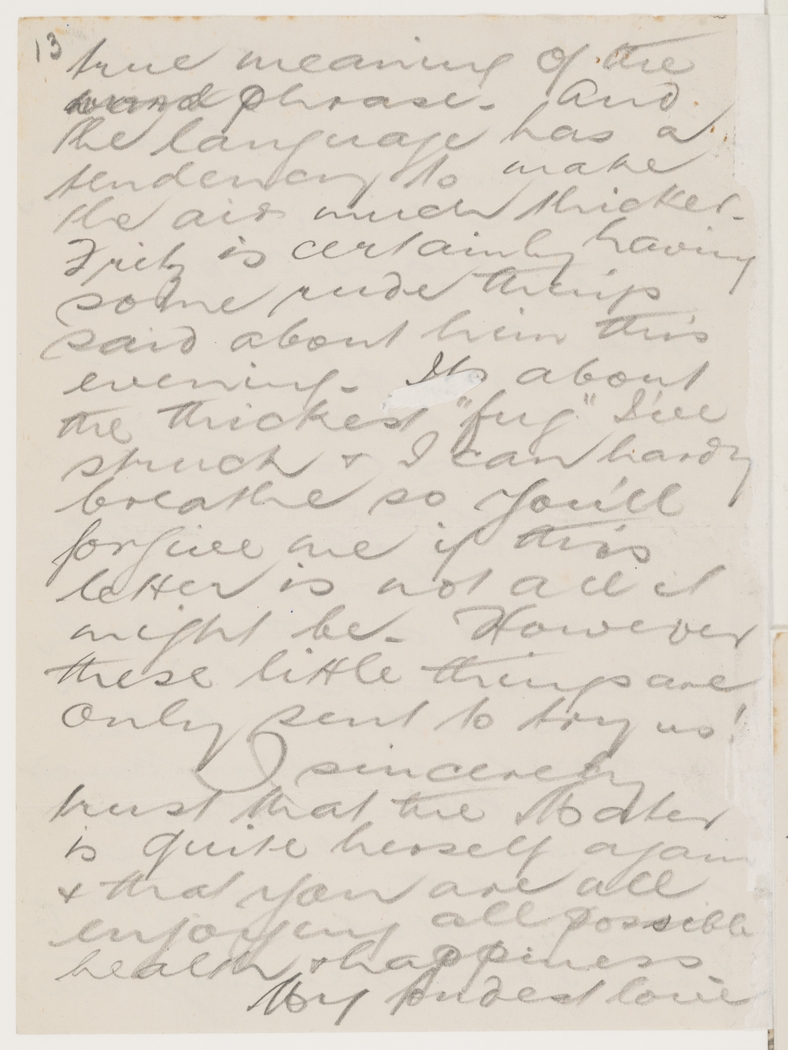 13
true meaning of the
word phrase. And
the language has a
tendency to make
the air much thicker.
Fritz is certainly having
some rude things
said about him this
evening. Its about
the thickest "fug" I've
struck & I can hardly
breathe so you'll
forgive me if this
letter is not all it
might be. However
these little things are
only sent to try us!
I sincerely
trust that the Mater
is quite herself again
& that you are all
enjoying all possible
health & happiness
My fondest love